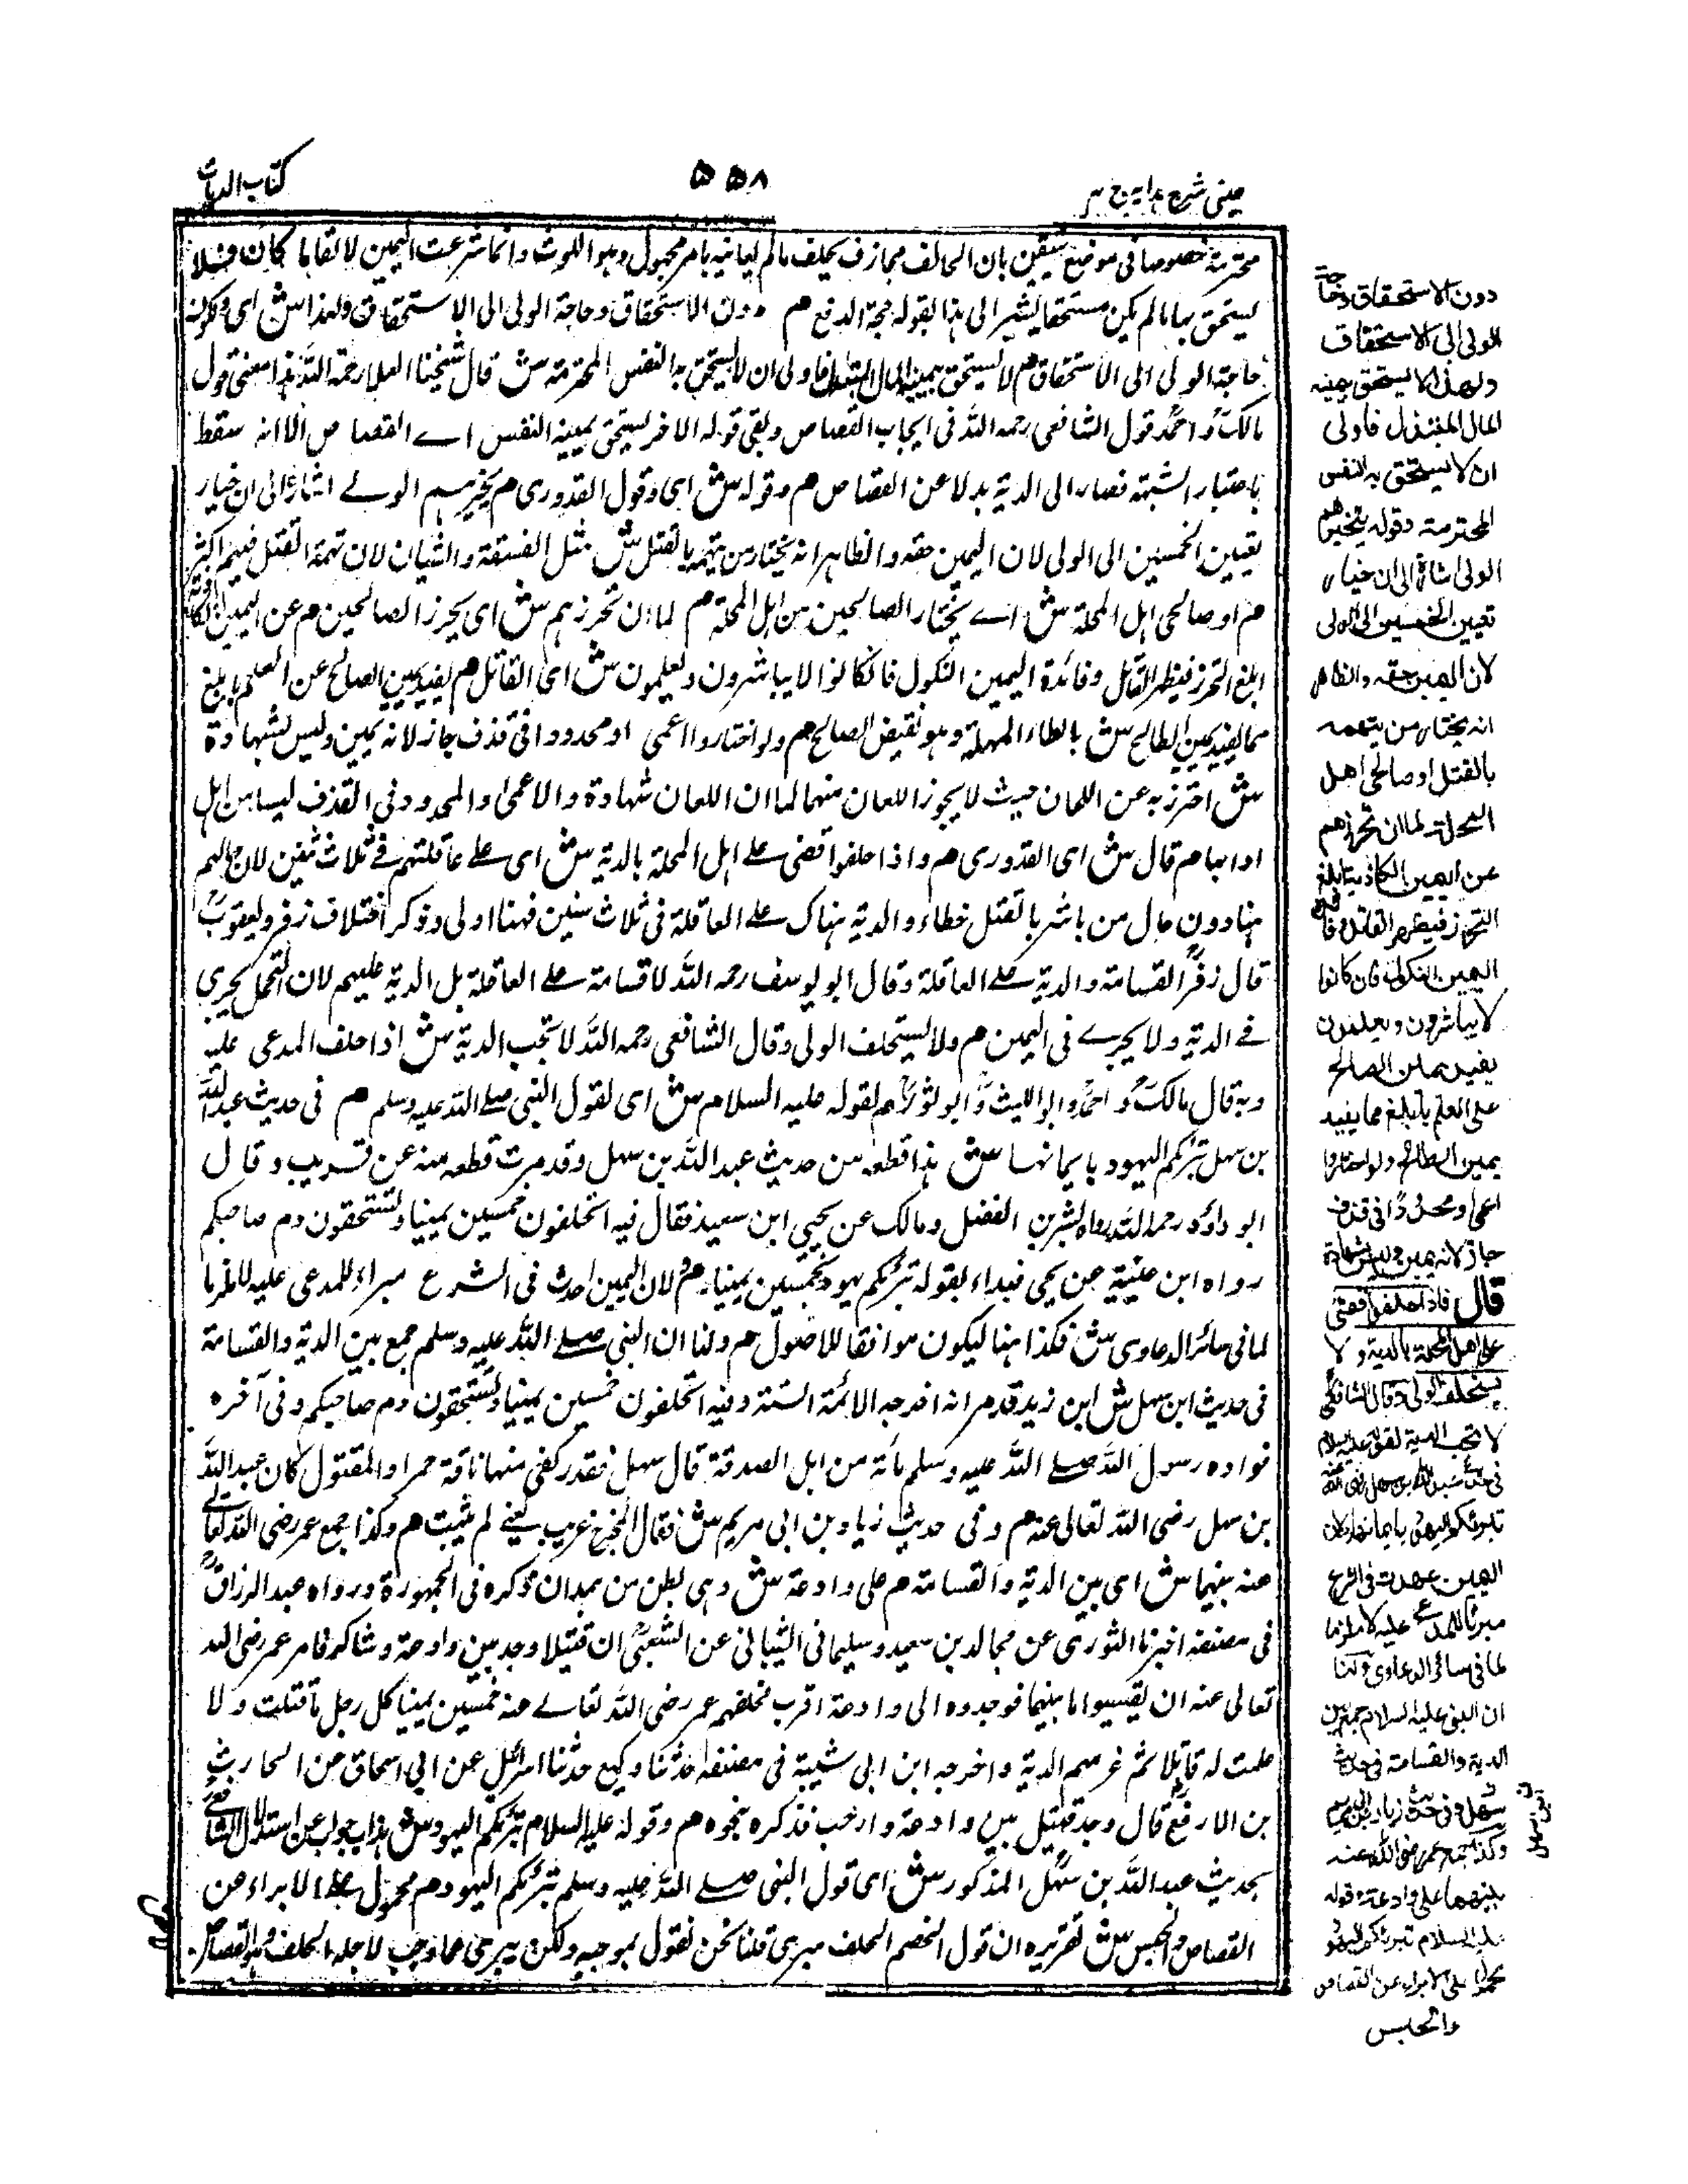 عینی شرح ہدایہ ج ۴
۵۵۸
کتاب الدیات
محترمة خصوصا فی موضع یتیقن بان الحالف مجازف یحلف مالم یعاینہ بامر مجہول وہو اللوث وانما شرعت الیمین لابقاء ما کان فلا
یستحق بہا مالم یکن مستحقا یشیر الی ہذا بقولہ حجة الدفع ھم دون الاستحقاق وحاجة الولی الی الاستحقاق ولہذا ش ای ولکون
حاجة الولی الی الاستحقاق ھم لا یستحق بیمینہ المال المبتذل فاولی ان لا یستحق بہ النفس المحترمة ش قال شیخنا العلاء رحمہ اللہ ہذا معنی قول
مالکؒ و احمدؒ قول الشافعی رحمہ اللہ فی ایجاب القصاص وبقی قولہ الاخر یستحق بیمینہ النفس اے القصاص الا انہ سقط
باعتبار الشبہة فصار الی الدیة بدلا عن القصاص ھم وقولہ ش ای وقول القدوری م یخیرہم الولے اشارة الی ان خیار
تعیین الخمسین الی الولی لان الیمین حقہ والظاہر انہ یختار من یتہمہ بالقتل ش مثل الفسقة والشبان لان تہمة القتل فیہم اکثر
ھم او صالحی اہل المحلة ش اے یختار الصالحین من اہل المحلة ھم لما ان تحرزہم ش ای تحرز الصالحین م عن الیمین الکاذبة
ابلغ التحرز فیظہر القاتل وفائدة الیمین النکول فان کانوا لا یباشرون ویعلمون ش ای القاتل ھم یفید یمین الصالح عن العلم بابلغ
مما یفید یمین الطالح ش بالطاء المہملة وہو نقیض الصالح ھم ولو اختاروا اعمی او محدودا فی قذف جاز لانہ یمین ولیس بشہادة
ش احترز بہ عن اللعان حیث لا یجوز اللعان منہما لما ان اللعان شہادة والاعمی والمحدود فی القذف لیسا من اہل
اداہا ھم قال ش ای القدوری ھم واذا حلفوا قضی علے اہل المحلة بالدیة ش ای علے عاقلتہم فے ثلاث سنین لان حالہم
ہنا دون حال من باشر بالقتل خطاء والدیة ہناک علے العاقلة فی ثلاث سنین فہنا اولی وذکر اختلاف زفر ویعقوبؒ
قال زفرؒ القسامة والدیة علے العاقلة وقال ابو یوسف رحمہ اللہ لا قسامة علے العاقلة بل الدیة علیہم لان التحمل یجری
فے الدیة ولا یجرے فی الیمین ھم ولا یستحلف الولی وقال الشافعی رحمہ اللہ لا تجب الدیة ش اذا حلف المدعی علیہ
وبہ قال مالکؒ و احمدؒ وابو اللیثؒ وابو ثورؒ ھم لقولہ علیہ السلام ش ای لقول النبی صلے اللہ علیہ وسلم ھم فی حدیث عبد اللہ
بن سہل تبرئکم الیہود بایمانہا ش ہذا قطعہ من حدیث عبد اللہ بن سہل وقد مرت قطعہ منہ عن قریب وقال
ابو داؤد رحمہ اللہ رواہ بشر بن الفضل ومالک عن یحیی ابن سعید فقال فیہ اتحلفون خمسین یمینا وتستحقون دم صاحبکم
رواہ ابن عیینة عن یحی فبداء بقولہ تبرئکم یہود بخمسین یمینا ھم ولان الیمین عہدت فی الشرع مبراء للمدعی علیہ لا ملزما
لما فی سائر الدعاوی ش فکذا ہنا لیکون موافقا للاصول ھم ولنا ان النبی صلے اللہ علیہ وسلم جمع بین الدیة والقسامة
فی حدیث ابن سہل ش ابن زید قد مر انہ اخرجہ الائمة الستة وفیہ اتحلفون خمسین یمینا وتستحقون دم صاحبکم وفی آخرہ
فوادہ رسول اللہ صلے اللہ علیہ وسلم مأة من ابل الصدقة قال سہل فقد رکضنی منہا ناقة حمرا والمقتول کان عبد اللہ
بن سہل رضی اللہ تعالی عنہ ھم وفی حدیث زیاد بن ابی مریم ش فقال المخرج غریب یعنے لم یثبت ھم وکذا جمع عمر رضی اللہ تعالے
عنہ بینہما ش ای بین الدیة والقسامة ھم علی وادعة ش وہی بطن من ہمدان ذکرہ فی الجمہورة ورواہ عبد الرزاقؒ
فی مصنفہ اخبرنا الثوری عن مجالد بن سعید وسلیمانی الشیبانی عن الشعبیؒ ان قتیلا وجد بین وادعة وشاکر فامر عمر رضی اللہ
تعالی عنہ ان یقیسوا ما بینہما فوجدوہ الی وادعة اقرب فحلفہم عمر رضی اللہ تعالے عنہ خمسین یمینا کل رجل ما قتلت ولا
علمت لہ قاتلا ثم غرمہم الدیة واخرجہ ابن ابی شیبة فی مصنفہ حدثنا وکیع حدثنا اسرائیل عن ابی اسحاق عن الحارث
بن الازمع قال وجد قتیل بین وادعة وارحب فذکرہ بنحوہ ھم وقولہ علیہ السلام تبرئکم الیہود ش ہذا جواب عن استدلال الشافعے
بحدیث عبد اللہ بن سہل المذکور ش ای قول النبی صلے اللہ علیہ وسلم تبرئکم الیہود ھم محمول علے الابراء عن
القصاص والحبس ش تقریرہ ان قول الخصم الحلف مبری قلنا نحن نقول بموجبہ ولکن یبری عما وجب لاجلہ الحلف وہو القصاص
دون الاستحقاق وحاجة
الولی الی الاستحقاق
ولهذا لا یستحق بیمینه
المال المبتذل فاولی
ان لا یستحق به النفس
المحترمة وقوله یتخیرهم
الولی اشارة الی ان خیار
تعیین الخمسین الی الولی
لان الیمین حقه والظاهر
انه یختار من یتهمه
بالقتل او صالحی اهل
المحلة لما ان تحرزهم
عن الیمین الکاذبة ابلغ
التحرز فیظهر القاتل وفائدة
الیمین النکول فان کانوا
لا یباشرون ویعلمون
یفید یمین الصالح
علی العلم بابلغ مما یفید
یمین الطالح ولو اختاروا
اعمی او محدودا فی قذف
جاز لانه یمین ولیس بشهادة
قال فاذا حلفوا قضی
علی اهل المحلة بالدیة ولا
یستحلف الولی وقال الشافعی
لا تجب الدیة لقوله علیه السلام
فی حدیث عبد الله بن سهل رضی الله عنه
تبرئکم الیهود بایمانها ولان
الیمین عهدت فی الشرع
مبرئا للمدعی علیه لا ملزما
لما فی سائر الدعاوی ولنا
ان النبی علیه السلام جمع بین
الدیة والقسامة فی حدیث
سهل وفی حدیث زیاد بن ابی مریم
وکذا جمع عمر رضی الله عنه
بینهما علی وادعة وقوله
علیه السلام تبرئکم الیهود
محمول علی الابراء عن القصاص
والحبس